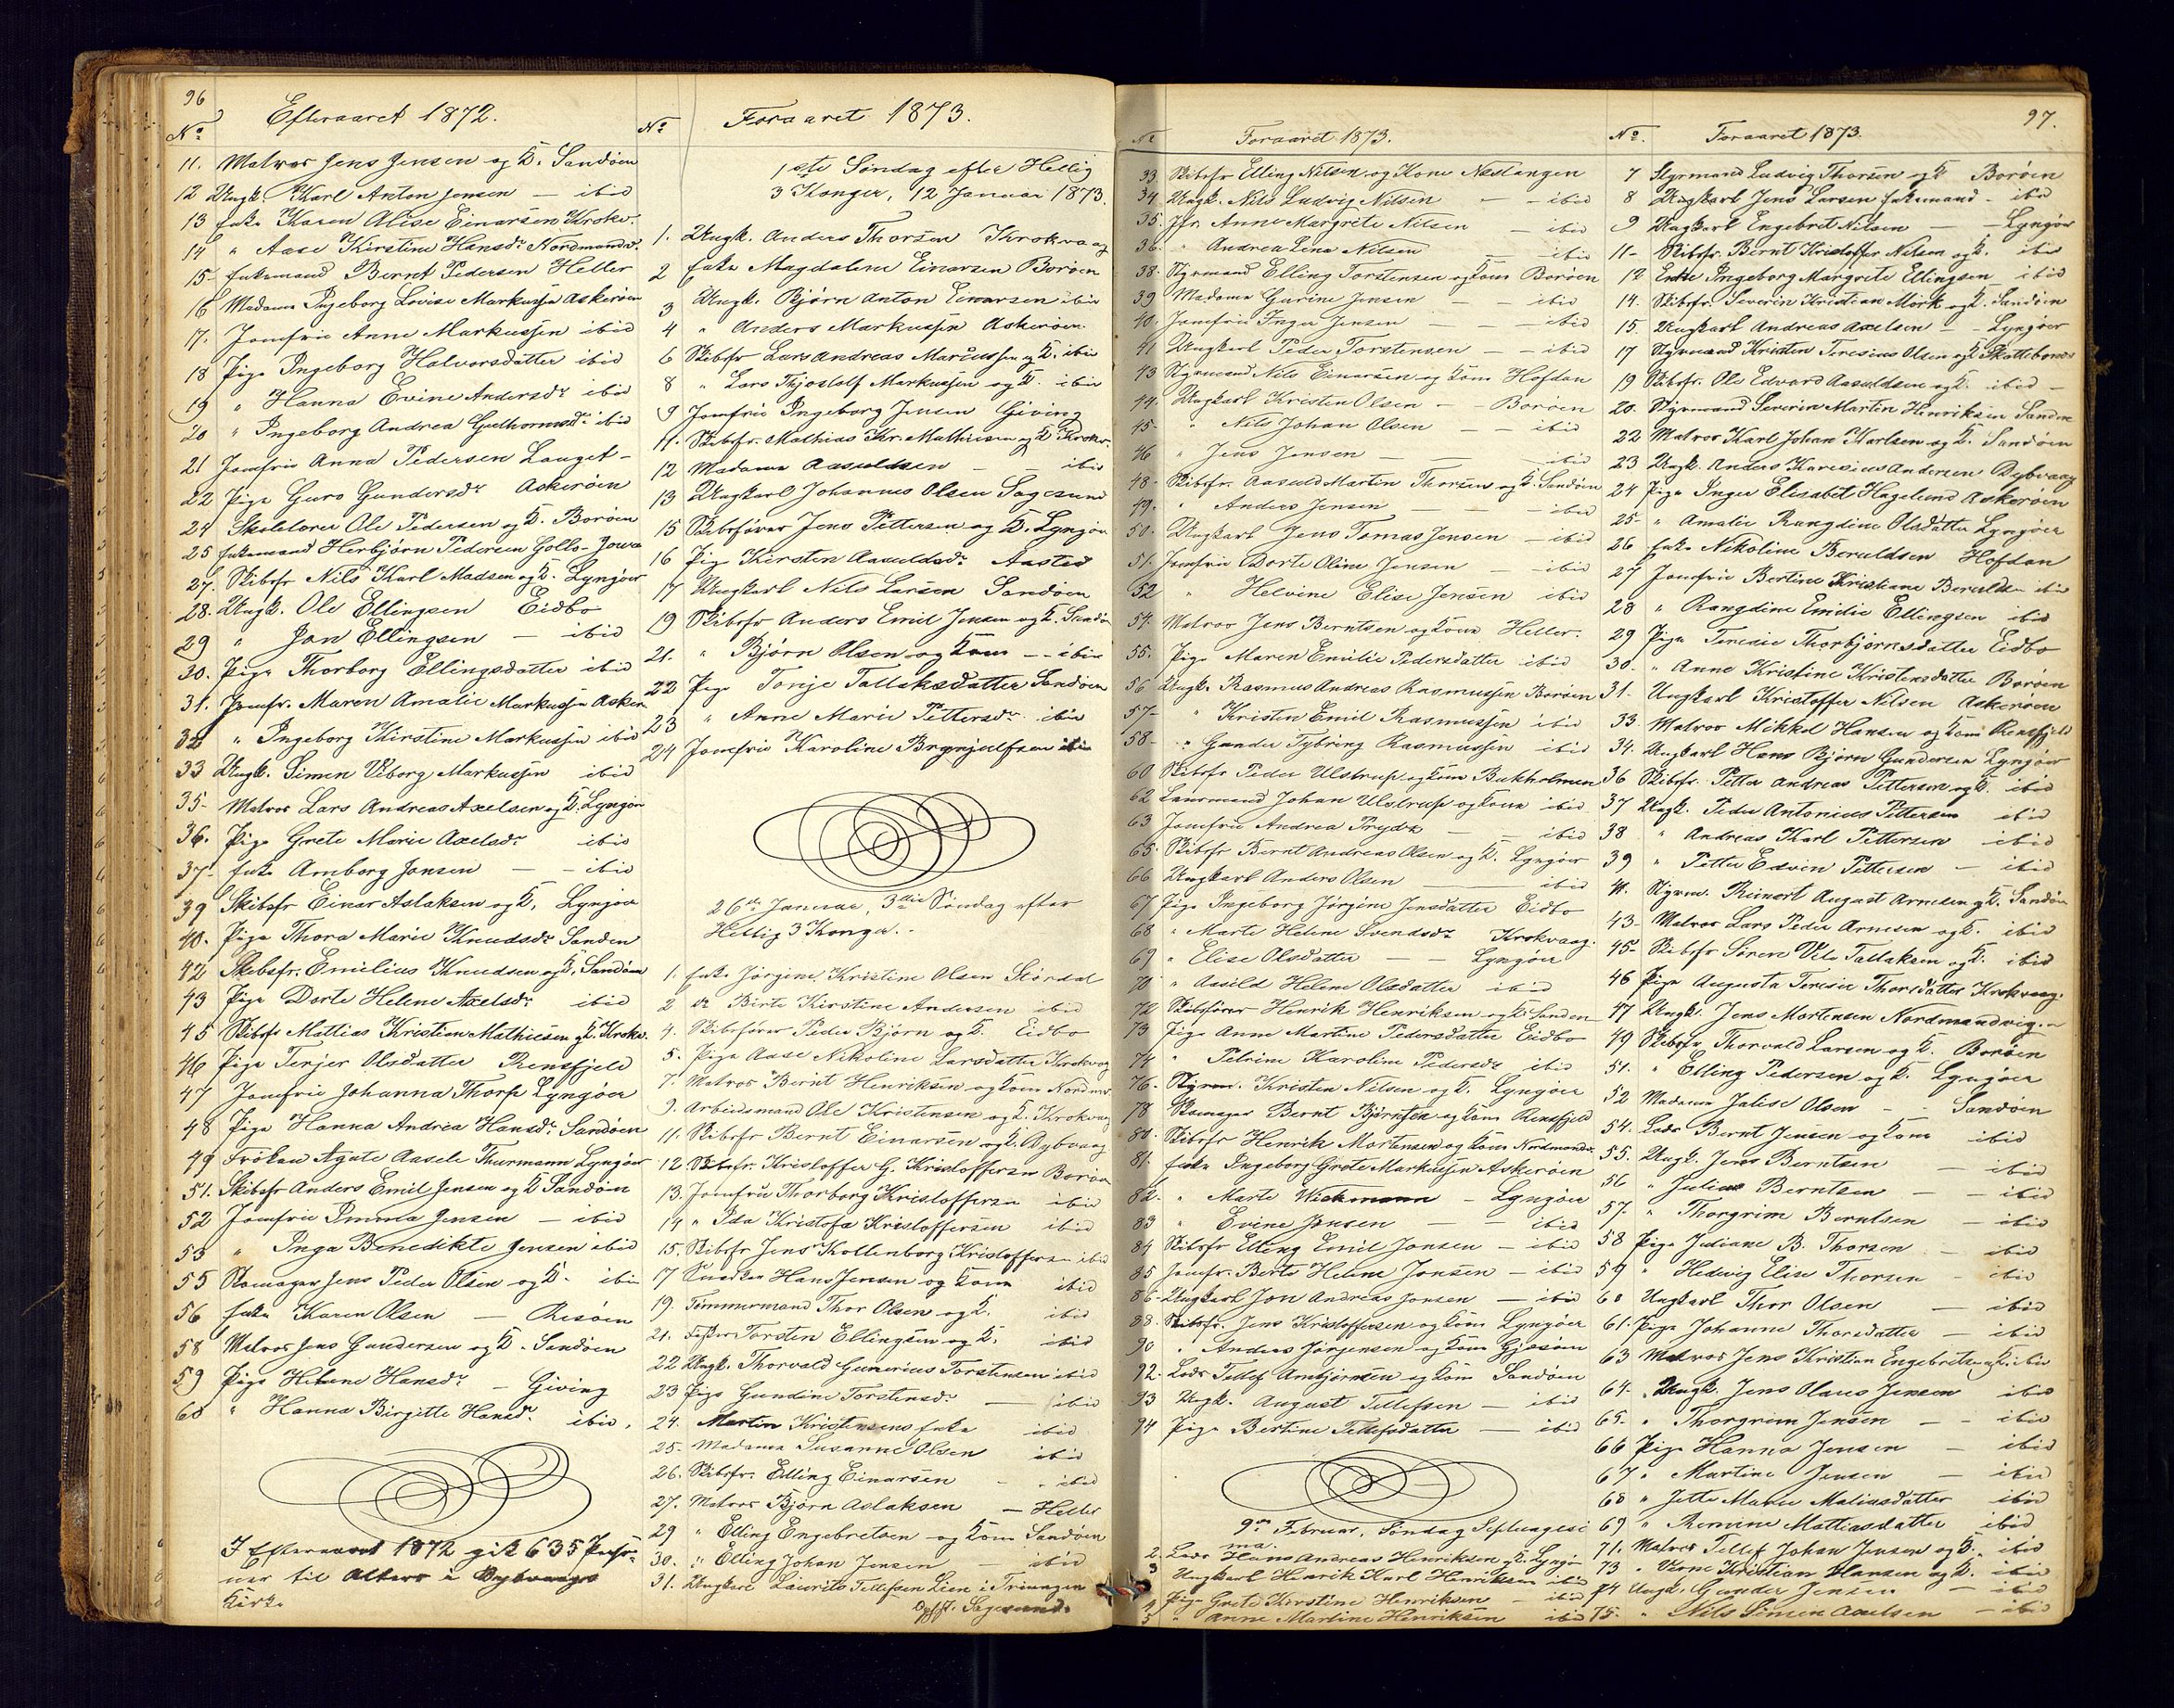 96
Efteraaret 1872.
No
11. Matros Jens Jensen og K. Sandøen
12 Ungk. Karl Anton Jensen — ibid
13 Enke Karen Alise Einarsen Krokv.
14 " Aase Kirstine Hansdr Nordmandv.
15 Enkemand Bernt Pedersen Heller
16 Madame Ingeborg Lovise Markussen Askerøen
17. Jomfrue Anne Markussen ibid
18 Pige Ingeborg Halvorsdatter ibid
19 " Hanna Evine Andersdr ibid
20 " Ingeborg Andrea Guthormsdr ibid
21 Jomfrue Anna Pedersen Lauget-
22 Pige Guro Gundersdr Askerøen
24 Skolelærer Ole Pedersen og K. Borøen
25 Enkemand Herbjørn Pedersen
27. Skibsfr Nils Karl Madsen og K. Lyngøer
28. Ungk. Ole Ellingsen Eidbo
29 " Jan Ellingsen — ibid
30. Pige Thorborg Ellingsdatter ibid
31. Jomfr. Maren Amalie Markussen Asker
32 " Ingeborg Kirstine Markussen ibid
33 Ungk. Simen Viborg Markussen ibid
35- Matros Lars Andreas Axelsen og K. Lyngøer
36. Pige Grete Marie Axelsdr ibid
37- Enke Arnborg Jonsen — ibid
39 Skibsfr Einar Aslaksen og K. Lyngøer
40. Pige Thora Marie Knudsdr Sanden
42 Skibsfr. Emilius Knudsen og K. Sandøen
43 Pige Dorte Helene Axelsdr ibid
45 Skibsfr Mattias Kristian Mathiesen og K. Krokv.
46 Pige Terjer Olsdatter Rensfjeld
47 Jomfrue Johanna Thorp Lyngøer
48 Pige Hanna Andrea Hansdr Sandøen
49 Frøken Agate Aasele Thurmann Lyngøer
51. Skibsfr Anders Emil Jensen og K Sandøen
52 Jomfrue Emma Jensen — ibid
53 " Inga Benedikte Jensen ibid
55 Skomager Jens Peder Olsen og K. ibid
56 Enke Karen Olsen — Risøen
58 Matros Jens Gundersen og K. Sandøen
59 Pige Helene Hansdr — Giving
60 " Hanna Birgitte Hansdr ibid.
I Efteraaret 1872 gik 635 Perso-
ner til Alters i Dybvaags
Kirke
No
Foraaret 1873.
1ste Søndag efter Hellig
3 Konger, 12 Januar 1873.
1. Ungk. Anders Thorsen Krokvaag
2 Enke Magdalene Einarsen Borøen
3 Ungk. Bjørn Anton Einarsen ibid
4 " Anders Markussen Askerøen
6 Skibsfr Lars Andreas Markussen og K. ibid
8 " Lars Thjostolf Markussen og K. ibid
9 Jomfrue Ingeborg Jensen Giving
11. Skibsfr. Mathias Kr. Mathiesen og K Krokv.
12 Madame Aasuldsen — — ibid
13 Ungkarl Johannes Olsen Sagesund
15 Skibsfører Jens Pettersen og K. Lyngøer
16 Pig Kirsten Aasuldsdr Aasted
17 Ungkarl Nils Larsen Sandøen
19 Skibsfr Anders Emil Jensen og K. Sandø
21. " Bjørn Olsen og Kone — ibid
22 Pige Tonje Tallaksdatter Sandøen
23 " Anne Marie Pettersdr ibid
24 Jomfrue Karoline Brynjulfsen ibid
26de Januar, 3die Søndag efter
Hellig 3 Konger.-
1. Enke Jørgine Kristine Olsen Størdal
2 do Birte Kirstine Andersen ibid
4. Skibsfører Peder Bjørn og K. Eidbo
5. Pige Aase Nikoline Larsdatter Krokvaag
7. Matros Bernt Henriksen og Kone Nordmv.
9. Arbeidsmand Ole Kristensen og K. Krokvaag
11. Skibsfr Bernt Einarsen og K. Dybvaag
12 Skibsfr. Kristoffer G. Kristoffersen Borøen
13. Jomfrue Thorborg Kristoffersen ibid
14 " Ida Kristofa Kristoffersen ibid
15. Skibsfr Jens Kollenborg Kristoffersen ibid
17 Snedker Hans Jensen og Kone ibid
19. Tømmermand Thor Olsen og K. ibid
21. Fisker Torsten Ellingsen og K. ibid
22 Ungk. Thorvald Gunerius Torstensen ibid
23 Pige Gundine Torstensdr — ibid
24. Martin Kristensens Enke ibid
25- Madame Susanne Olsen ibid
26. Skibsfr. Elling Einarsen — ibid
27. Matros Bjørn Aslaksen — Heller
29 " Elling Engebretsen og Kone Sandøen
30. " Elling Johan Jensen — ibid
31. Ungkarl Laurits Tellefsen Lien i Trævagen
Opff. Sagesund.
97.
No
Foraaret 1873.
33. Skibsfr Elling Nilsen og Kone Næslangen
34 Ungk. Nils Ludvig Nilsen — — ibid
35. Jfr. Anne Margrete Nilsen — ibid
36 " Andrea Lena Nilsen — ibid
38. Styrmand Elling Torstensen og Kone Borøen
39 Madame Gurine Jensen — — ibid
40. Jomfrue Inger Jensen — — ibid
41 Ungkarl Peder Torstensen — — ibid
43 Styrmand Nils Einarsen og Kone Hofdan
44. Ungkarl Kristen Olsen — — Borøen
45- " Nils Johan Olsen — — ibid
46 " Jens Jensen — — ibid
48- Skibsfr. Aasuld Martin Thorsen og K. Sandøen
49. " Anders Jensen — — ibid
50. Ungkarl Jens Tomas Jensen — ibid
51. Jomfrue Dorte Oline Jensen — ibid
52 " Helvine Elise Jensen ibid
54. Matros Jens Berntsen og Kone Heller.
55. Pige Maren Emilie Pedersdatter ibid
56 Ungk. Rasmus Andreas Rasmussen Borøen
57- " Kristen Emil Rasmussen ibid
58- " Gunder Tybring Rasmussen ibid
60 Skibsfr Peder Ulstrup og Kone Bukholmen
62 Lansmand Johan Ulstrup og Kone ibid
63 Jomfrue Andrea Prydz — — ibid
65. Skibsfr Bernt Andreas Olsen og K. Lyngøer
66 Ungkarl Anders Olsen — ibid
67 Pige Ingeborg Jørgine Jensdatter Eidbo
68 " Marte Helene Svendsdr Krokvaag.
69 " Elise Olsdatter — — Lyngøer
70 " Aasild Helene Olsdatter ibid
72 Skibsfører Henrik Henriksen og K. Sanden
73 Pige Anne Martine Pedersdatter Eidbo
74 " Petrine Karoline Pedersdr ibid
76. Styrm. Kristen Nilsen og K. Lyngøer
78 Skomager Bernt Bjørnsen og Kone Rensfjeld
80. Skibsfr Henrik Mortensen og Kone Nordmandv.
81. Enke Ingeborg Grete Markussen Askerøen
82. " Marte Wichmann — Lyngøer
83 " Evine Jonsen — — ibid
84 Skibsfr Elling Emil Jonsen — ibid
85 Jomfr. Birte Helene Jonsen — ibid
86- Ungkarl Jon Andreas Jonsen — ibid
88. Skibsfr. Jens Kristoffersen og Kone Lyngøer
90 " Anders Jørgensen og Kone Gjesøen
92. Lods Tellef Arnbjørnsen og Kone Sandøen
93 Ungk. August Tellefsen — ibid
94 Pige Bertine Tellefsdatter — ibid
9de Februar, Søndag Septuagesi
ma.
2. Lods Hans Andreas Henriksen og K. Lyngør
3 Ungkarl Henrik Karl Henriksen ibid
4 Pige Grete Kirstine Henriksen — ibid
5 " Anne Martine Henriksen ibid
No.
Foraaret 1873.
7 Styrmand Ludvig Thorsen og K Borøen
8 Ungkarl Jens Larsen Enkemand — ibid
9 Ungkarl Engebret Nilsen — — Lyngøer
11- Skibsfr. Bernt Kristoffer Nilsen og K. ibid
12 Enke Ingeborg Margrete Ellingsen ibid
14. Skibsfr. Severin Kristian Mørk og K. Sandøen
15. Ungkarl Andreas Axelsen — — Lyngøer
17 Styrmand Kristen Teresius Olsen og K Skottebond
19 Skibsfr. Ole Edvard Aasuldsen og K. ibid —
20. Styrmand Severin Martin Henriksen Sandøe
22 Matros Karl Johan Karlsen og K. Sandøen
23 Ungk. Anders Karesius Andersen Dybvaag
24 Pige Inger Elisabet Hagelund Askerøen
25- " Amalie Rangdine Olsdatter Lyngøer
26 Enke Nikoline Beruldsen Hofdan
27 Jomfrue Bertine Kristiane Beruldsen ibid
28 " Rangdine Emilie Ellingsen ibid
29 Pige Teresie Thorbjørnsdatter Eidbo
30. " Anne Kristine Kristensdatter Borøen
31. Ungkarl Kristoffer Nilsen Askerøen
33. Matros Mikkel Hansen og Kone Rensfjeld
34. Ungkarl Hans Bjørn Gundersen Lyngøer
36 Skibsfr. Petter Andreas Pettersen og K. ibid
37 Ungk. Peder Antonius Pettersen ibid
38 " Andreas Karl Pettersen ibid
39 " Petter Edvin Pettersen — ibid
41. Styrm. Reinert August Arnesen og K. Sandøen
43- Matros Lars Peder Arnesen og K. ibid
45- Skibsfr Søren Vilo Tallaksen og K. ibid
46 Pige Augusta Teresie Thorsdatter Krokvaag.
47 Ungk. Jens Mortensen Nordmandvigen
49 Skibsfr. Thorvald Larsen og K. Borøen
51. " Elling Pedersen og K. Lyngøer
52 Madame Julise Olsen — — Sandøen
54. Lods Bernt Jensen og Kone ibid
55. Ungk. Jens Berntsen — ibid
56 " Julius Berntsen — — ibid
57- " Thorgrim Berntsen — ibid
58 Pige Juliane B. Thorsen — ibid
59 " Hedevig Elise Thorsen — ibid
60 Ungkarl Thor Olsen — ibid
61. Pige Johanne Thorsdatter — ibid
63 Matros Jens Kristian Engebretsen og K. ibid
64. Ungk. Jens Olaus Jensen ibid
65. " Thorgrim Jensen — — ibid
66 Pige Hanna Jensen — ibid
67 " Martine Jensen — ibid
68 " Jette Marie Matiasdatter ibid
69 " Remine Mattiasdatter ibid
71. Matros Tellef Johan Jensen og K. ibid
73 " Verne Kristian Hansen og K. ibid
74 Ungk. Gunder Jensen — ibid
75. " Nils Simen Axelsen — ibid